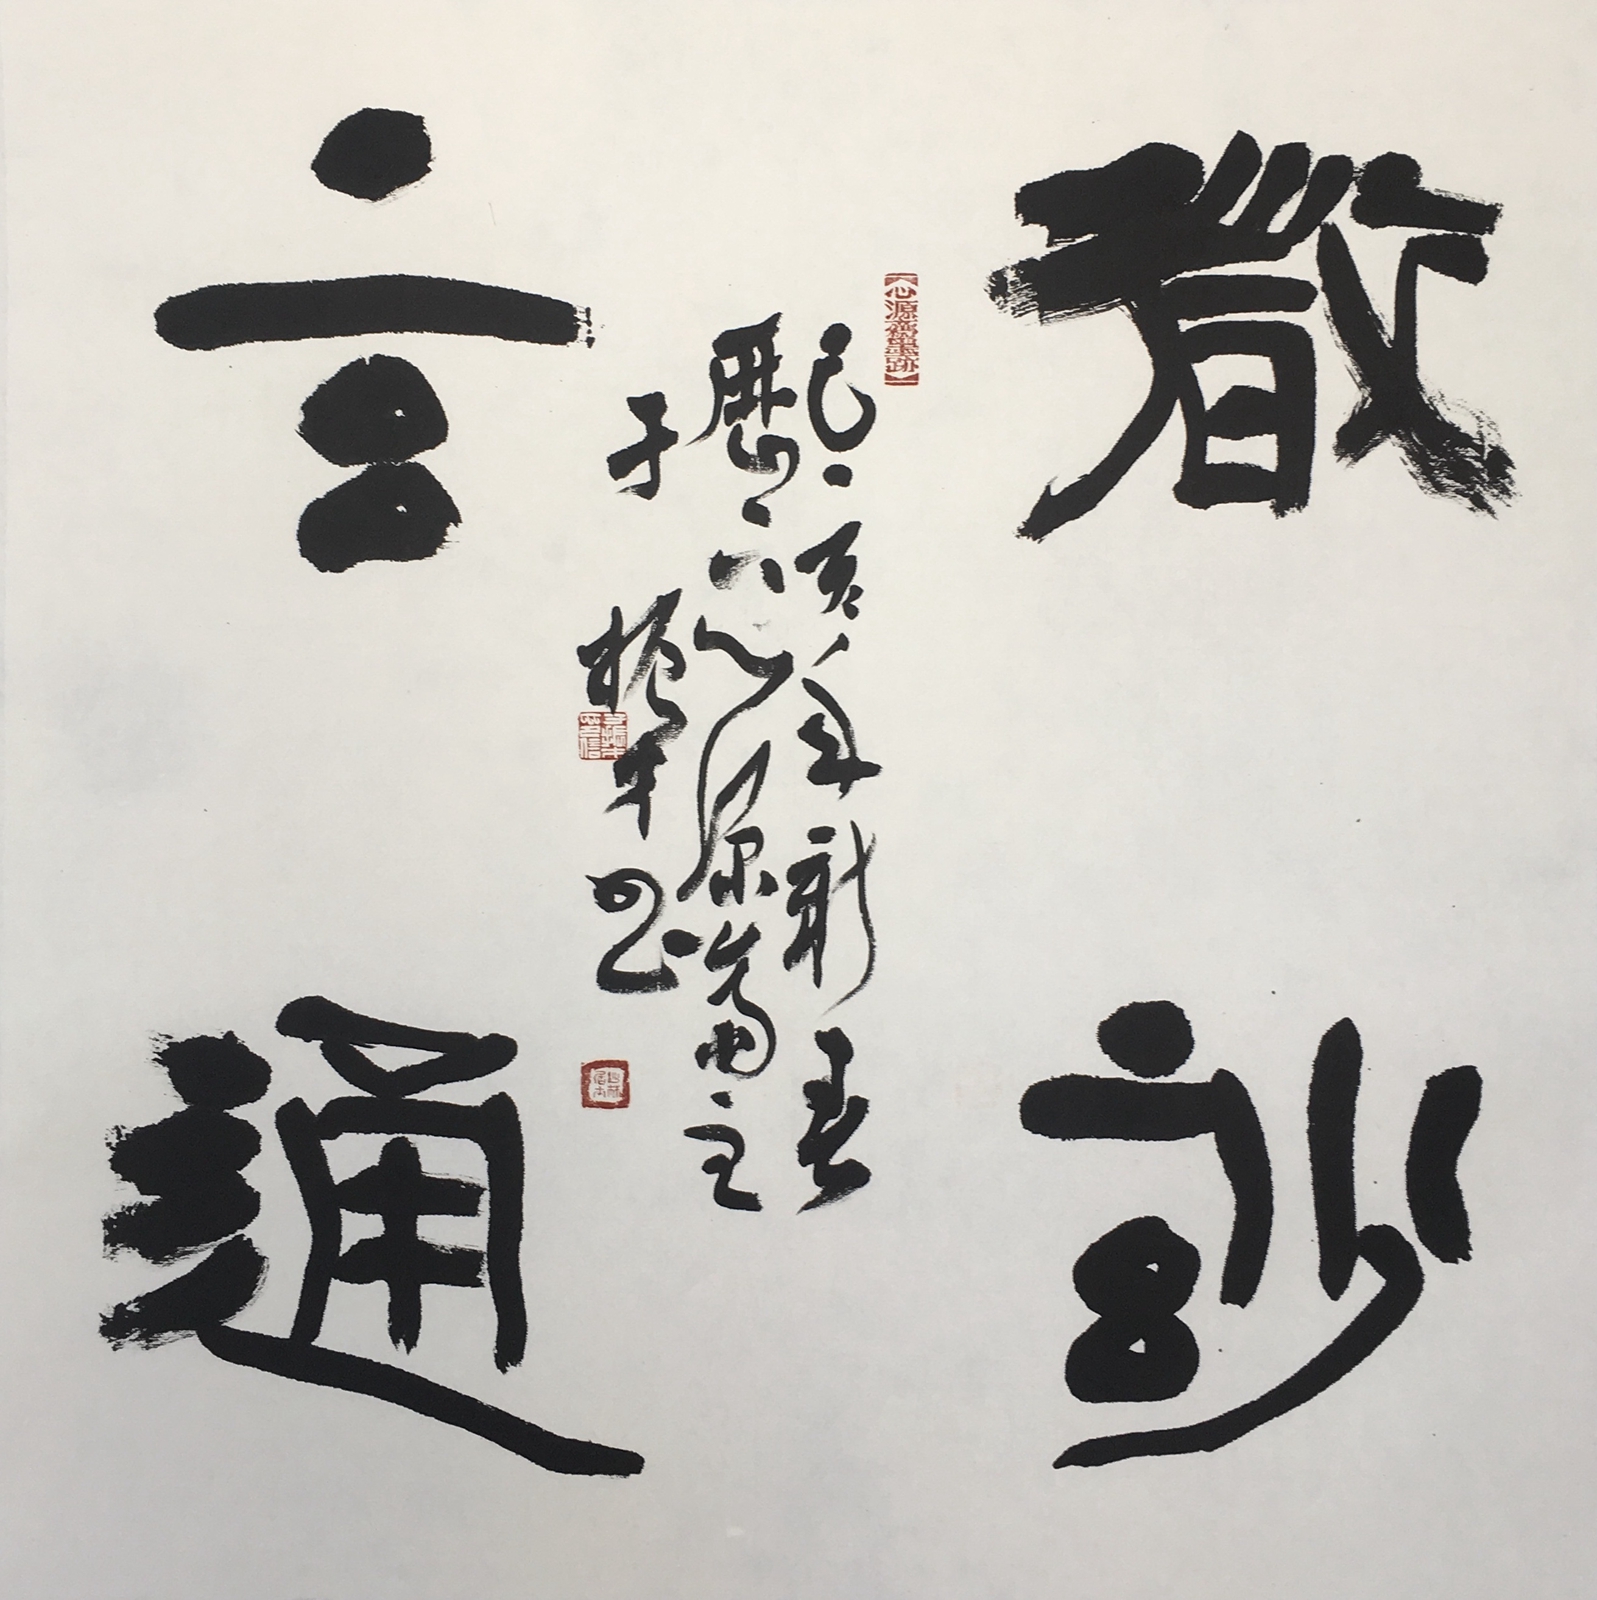 微玅
玄通
己亥年新春
歷下心源齋主
于振平書
心源齋墨跡